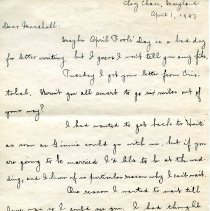 Chevy Chase, Maryland
April 1, 1927
Dear Marshall:
Maybe April Fools' Day is a bad day
for letter writing, but I guess I won't tell you any fibs.
Tuesday I got your letter from
Weren't you all sweet to go six miles out of
your way?
I had wanted to get back to Haiti
as soon as Ginnie could go with me, but if you
are going to be married I'd like to be at the wed-
ding, and I know of no particular reason why I can't wait.
One reason I wanted to wait till
I could see you. I had thought